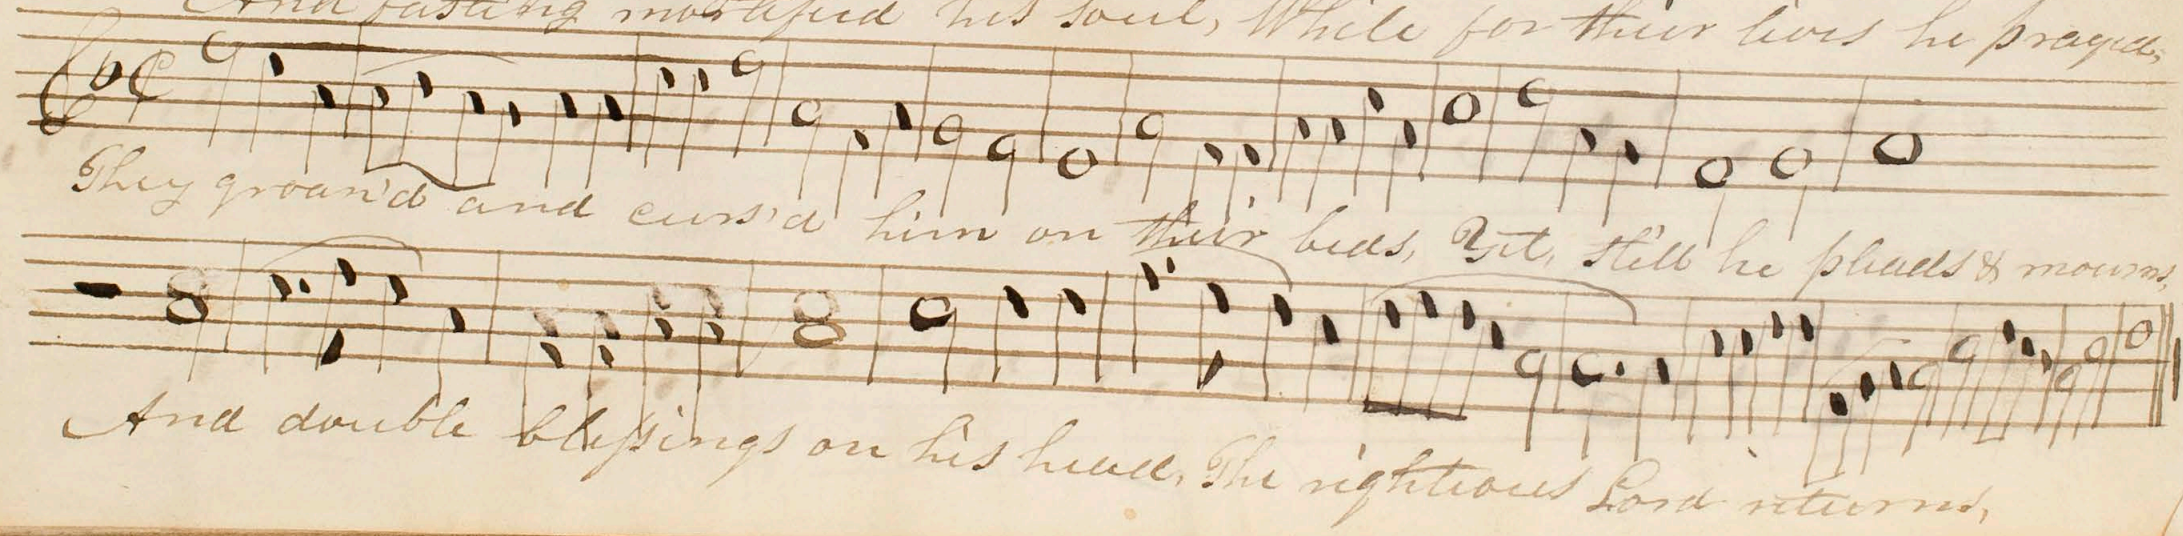 And fasting mortified his soul, While for their lives he prayed,
They groan'd and curs'd him on their beds, Yet, still he pleads & mourns,
And double blessings on his head, The righteous Lord returns,